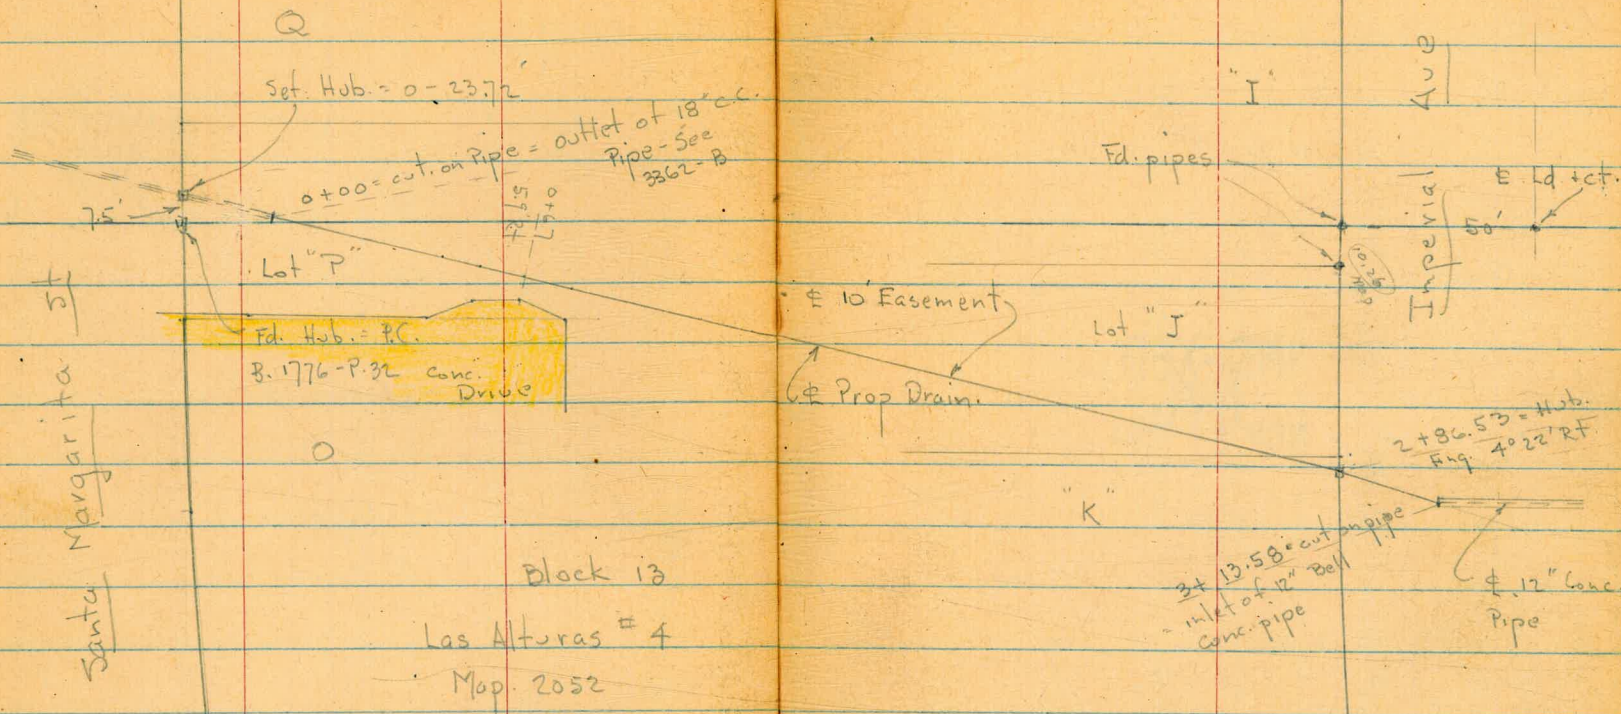 Q
Set. Hub. = 0 - 23.72'
0+00 = cut. on Pipe = outlet of 18" C.C.
Pipe - See
3362-B
7.5'
Lot "P"
Fd. Hub. = P.C.
B. 1776 - P. 32
Conc.
Drive
O
Santa Margarita St
Block 13
Las Alturas # 4
Map. 2052
"I"
Fd. pipes
Imperial Ave
50'
℄ Ld + ct.
℄ 10' Easement
Lot "J"
℄ Prop Drain.
2+86.53 = Hub.
Ang. 4° 22' Rt
"K"
3+13.58 = cut on pipe
= inlet of 12" Bell
conc. pipe
℄ 12" Conc
Pipe